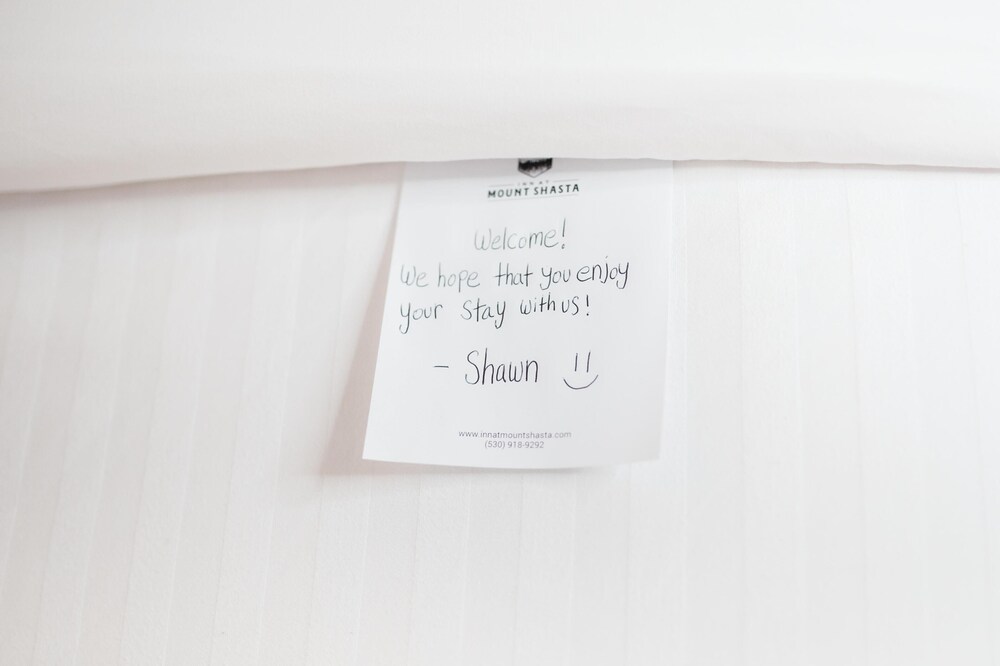 INN AT
MOUNT SHASTA
Welcome!
We hope that you enjoy
your stay with us!
- Shawn
www.innatmountshasta.com
(530) 918-9292